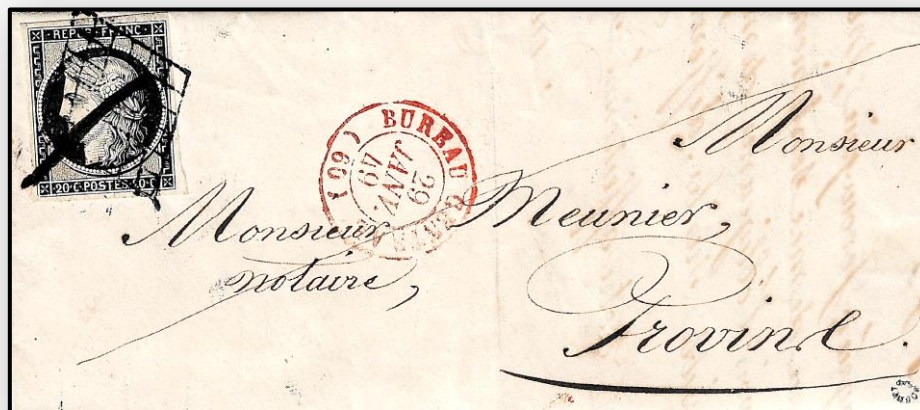 REPUB. FRANC.
20 c POSTES 20 c
BUREAU CENTRAL (60)
29
JANV.
49
Monsieur
Monsieur Meunier,
notaire,
Provins.